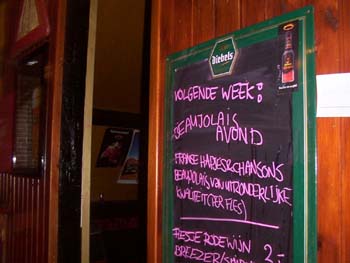 Diebels
VOLGENDE WEEK:
BEAUJOLAIS
AVOND
FRANSE HAPJES & CHANSONS
BEAUJOLAIS VAN UITZONDERLIJKE
KWALITEIT (PER FLES)
FLESJE RODE WIJN 2,-
BREEZER/